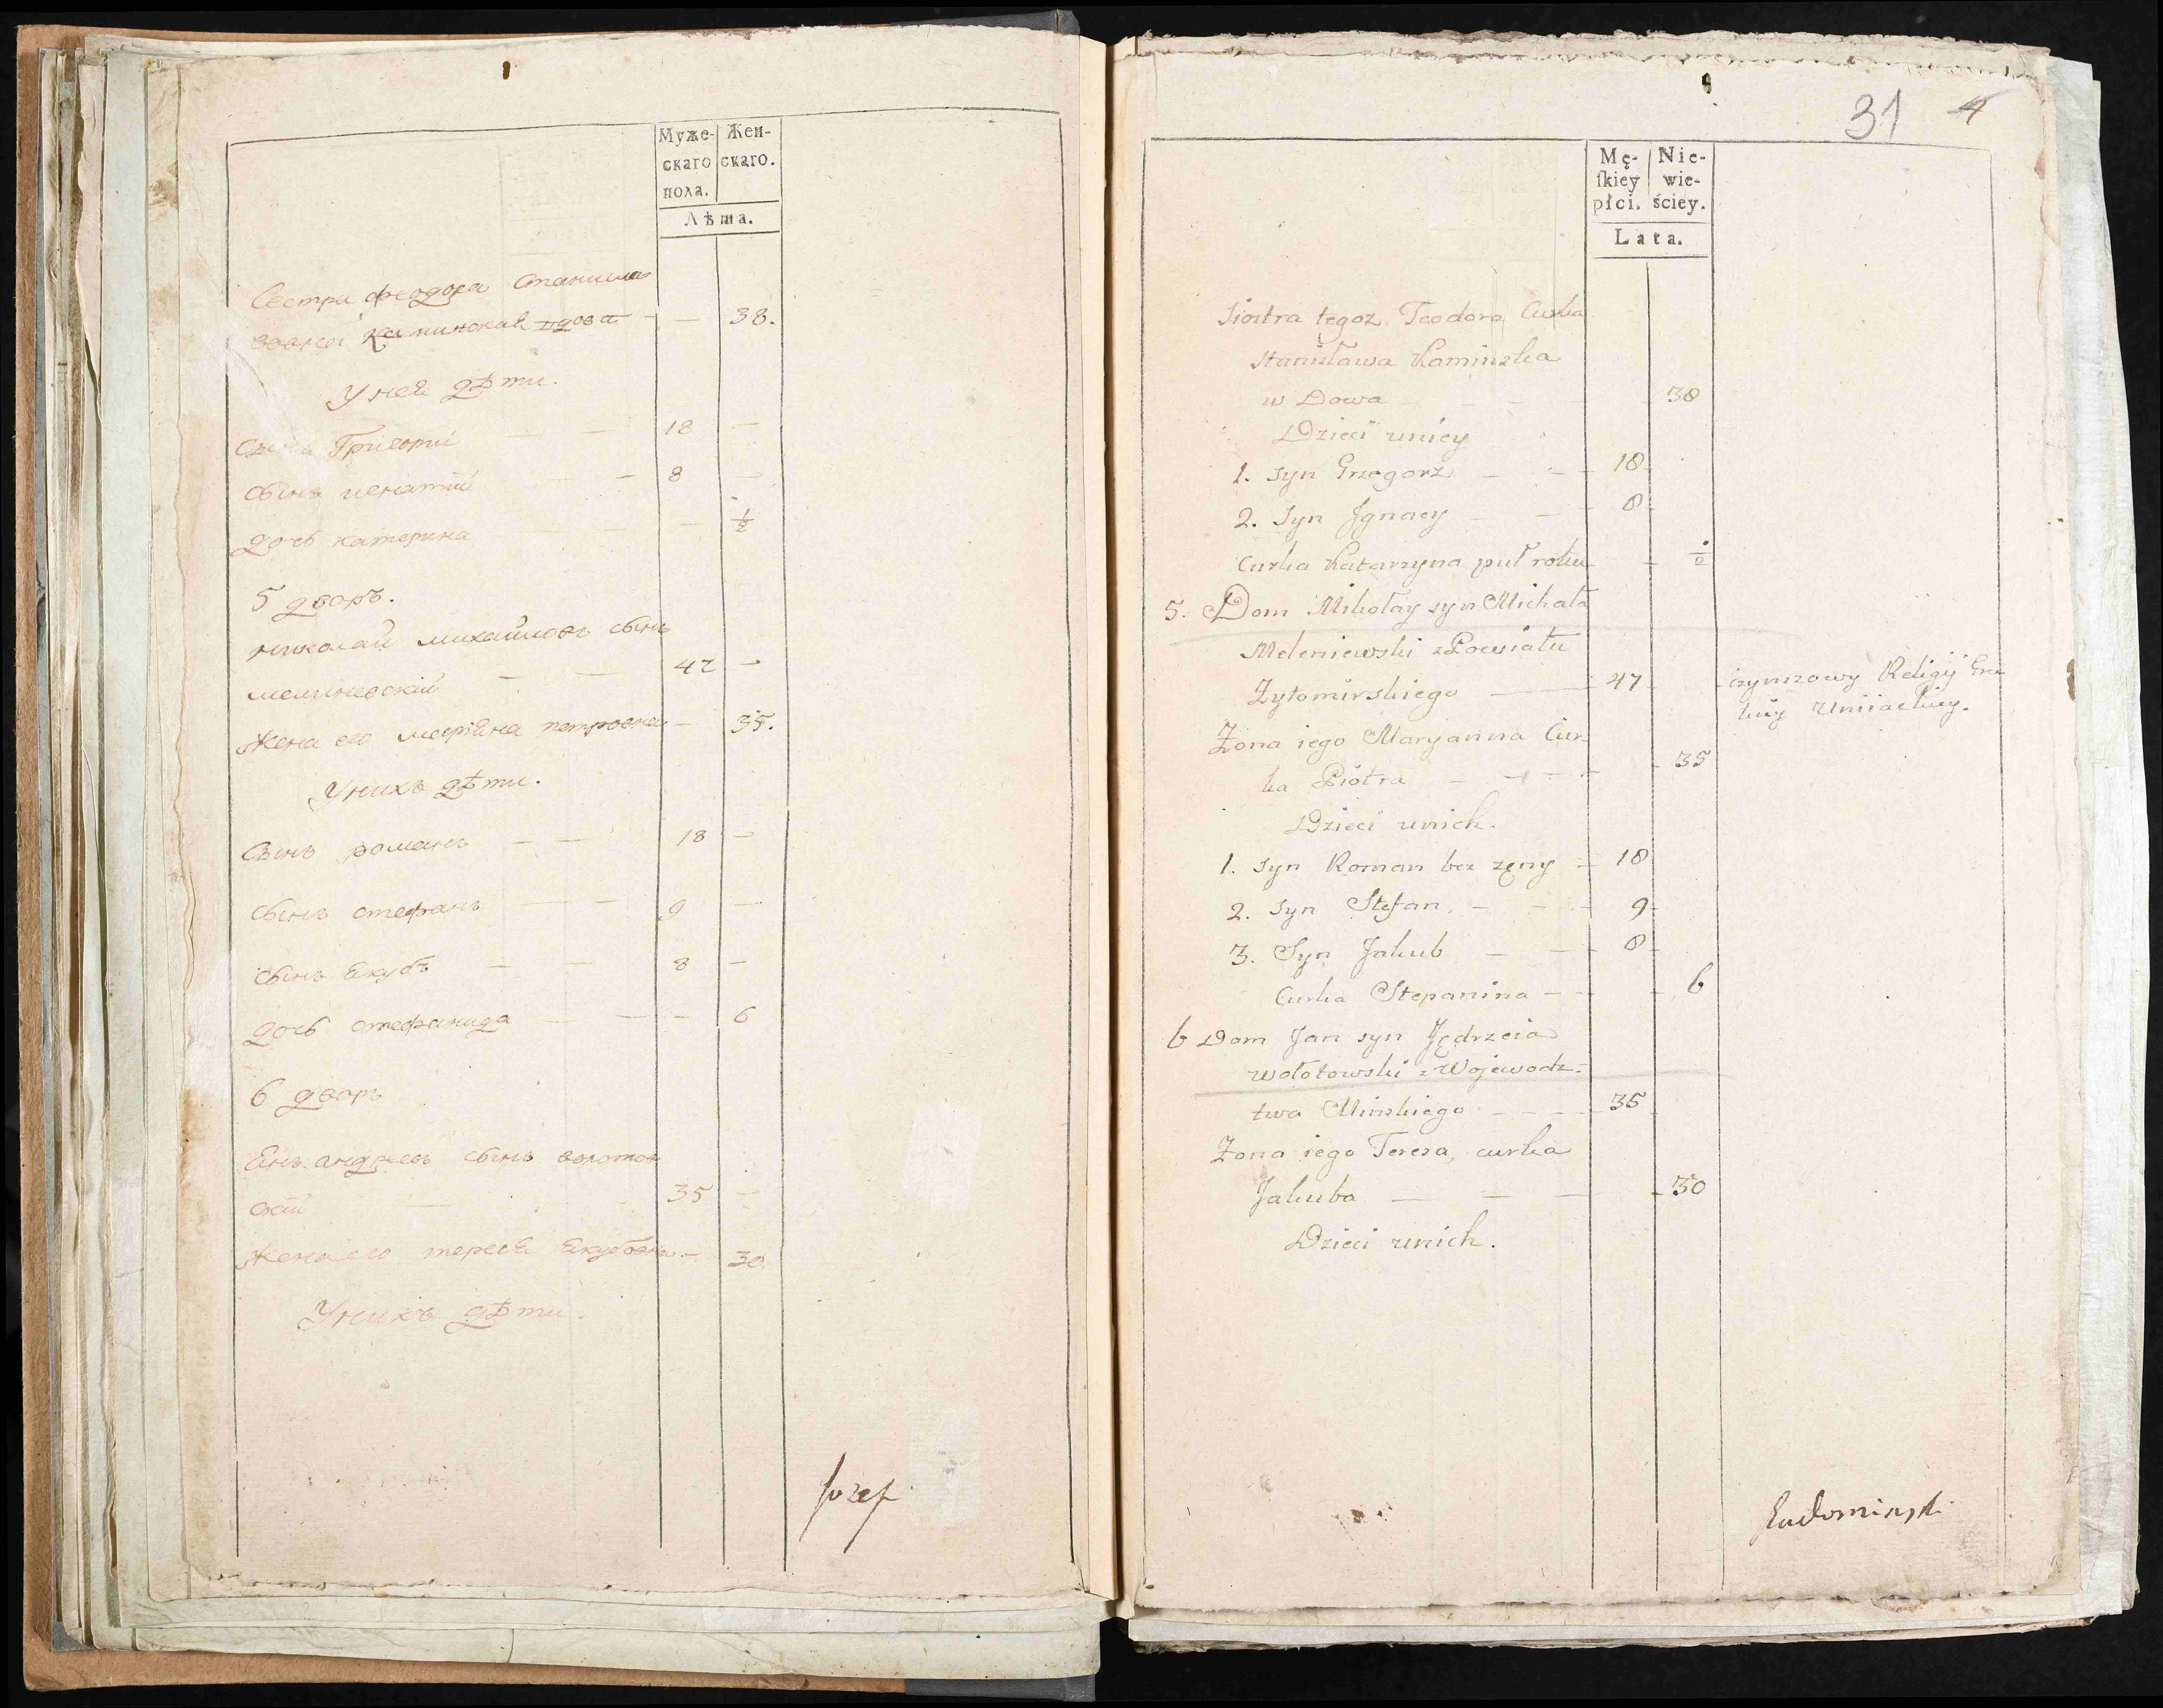 Муже-
скаго
пола.
Жен-
скаго.
Лѣта.
Сестра феодора Станисла
вовна Каминская вдова — — 38.
У ней дѣти.
Сынъ Григорій — — 18 —
Сынъ игнатій — — 8 —
дочь катерина — — 1/2
5 дворъ.
николай михайловъ сынъ
мелиневскій — — 47 —
Жена его маріяна петровна — 35.
У нихъ дѣти.
Сынъ романъ — — 18 —
Сынъ стефанъ — — 9 —
Сынъ якубъ — — 8 —
дочь стефанида — — — 6
6 дворъ
Янъ андреевъ сынъ волотов
скій — 35 —
Жена его тереса якубовна — 30.
У нихъ дѣти.
Jozef
31 4
Mę-
ſkiey
płci.
Nie-
wie-
ściey.
Lata.
Siostra tegoz Teodora Curka
Stanisława Kaminska
w Dowa — — — 38
Dzieci unięy
1. Syn Grzegorz — — 18
2. Syn Jgnacy — — 8
Curka Katarzyna puł roku — 1/2
5. Dom Mikołay syn Michała
Meleniewski z Powiatu
Zytomirskiego — 47 czynszowy Religij Gre-
kiey Uniiackiey.
Żona iego Maryanna Cur-
ka Piotra — — — 35
Dzieci unich.
1. Syn Roman bez zęny — 18
2. Syn Stefan — — 9
3. Syn Jakub — — 8
Curka Stepanina — — 6
6 Dom Jan syn Jędrzeia
Wołotowski z Wojewodz-
twa Minskiego — — — 35
Żona iego Teresa, curka
Jakuba — — — 30
Dzieci unich.